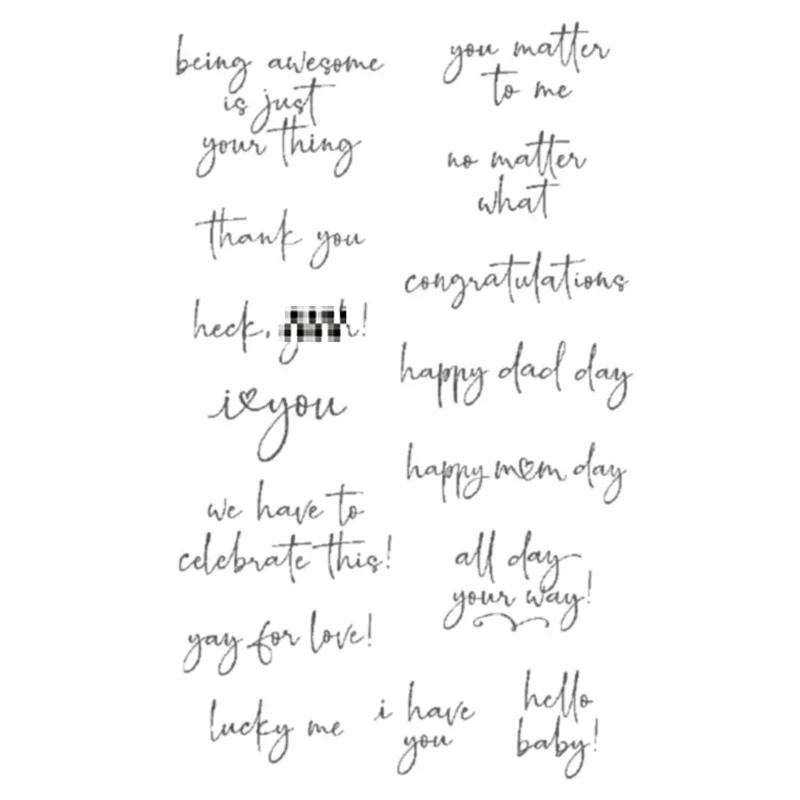 being awesome
is just
your thing
thank you
heck,
i♡you
we have to
celebrate this!
yay for love!
lucky me
you matter
to me
no matter
what
congratulations
happy dad day
happy m♡m day
all day
your way!
i have
you
hello
baby!